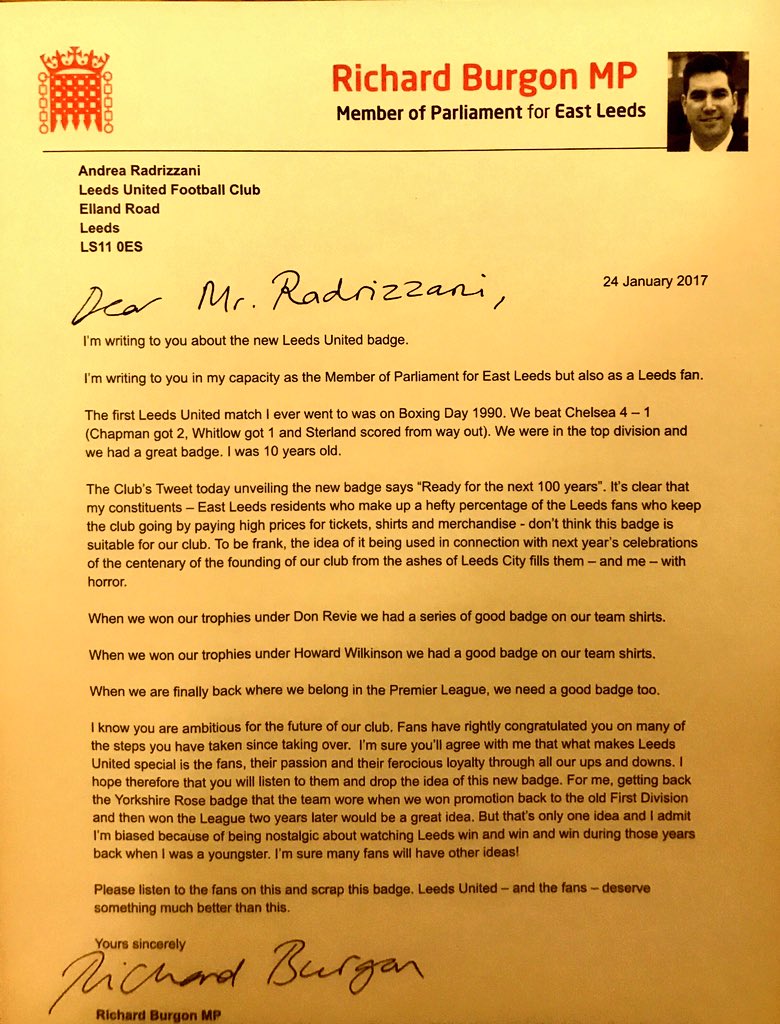 Richard Burgon MP
Member of Parliament for East Leeds
Andrea Radrizzani
Leeds United Football Club
Elland Road
Leeds
LS11 0ES
24 January 2017
Dear Mr. Radrizzani,
I'm writing to you about the new Leeds United badge.
I'm writing to you in my capacity as the Member of Parliament for East Leeds but also as a Leeds fan.
The first Leeds United match I ever went to was on Boxing Day 1990. We beat Chelsea 4 – 1
(Chapman got 2, Whitlow got 1 and Sterland scored from way out). We were in the top division and
we had a great badge. I was 10 years old.
The Club's Tweet today unveiling the new badge says "Ready for the next 100 years". It's clear that
my constituents – East Leeds residents who make up a hefty percentage of the Leeds fans who keep
the club going by paying high prices for tickets, shirts and merchandise - don't think this badge is
suitable for our club. To be frank, the idea of it being used in connection with next year's celebrations
of the centenary of the founding of our club from the ashes of Leeds City fills them – and me – with
horror.
When we won our trophies under Don Revie we had a series of good badge on our team shirts.
When we won our trophies under Howard Wilkinson we had a good badge on our team shirts.
When we are finally back where we belong in the Premier League, we need a good badge too.
I know you are ambitious for the future of our club. Fans have rightly congratulated you on many of
the steps you have taken since taking over. I'm sure you'll agree with me that what makes Leeds
United special is the fans, their passion and their ferocious loyalty through all our ups and downs. I
hope therefore that you will listen to them and drop the idea of this new badge. For me, getting back
the Yorkshire Rose badge that the team wore when we won promotion back to the old First Division
and then won the League two years later would be a great idea. But that's only one idea and I admit
I'm biased because of being nostalgic about watching Leeds win and win and win during those years
back when I was a youngster. I'm sure many fans will have other ideas!
Please listen to the fans on this and scrap this badge. Leeds United – and the fans – deserve
something much better than this.
Yours sincerely
Richard Burgon
Richard Burgon MP